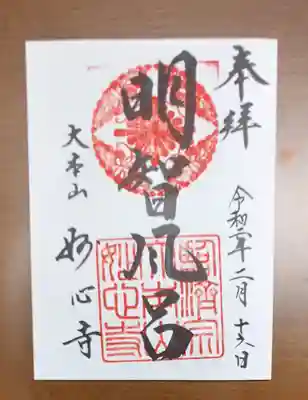 奉拝
令和二年二月十六日
明智風呂
大本山
妙心寺